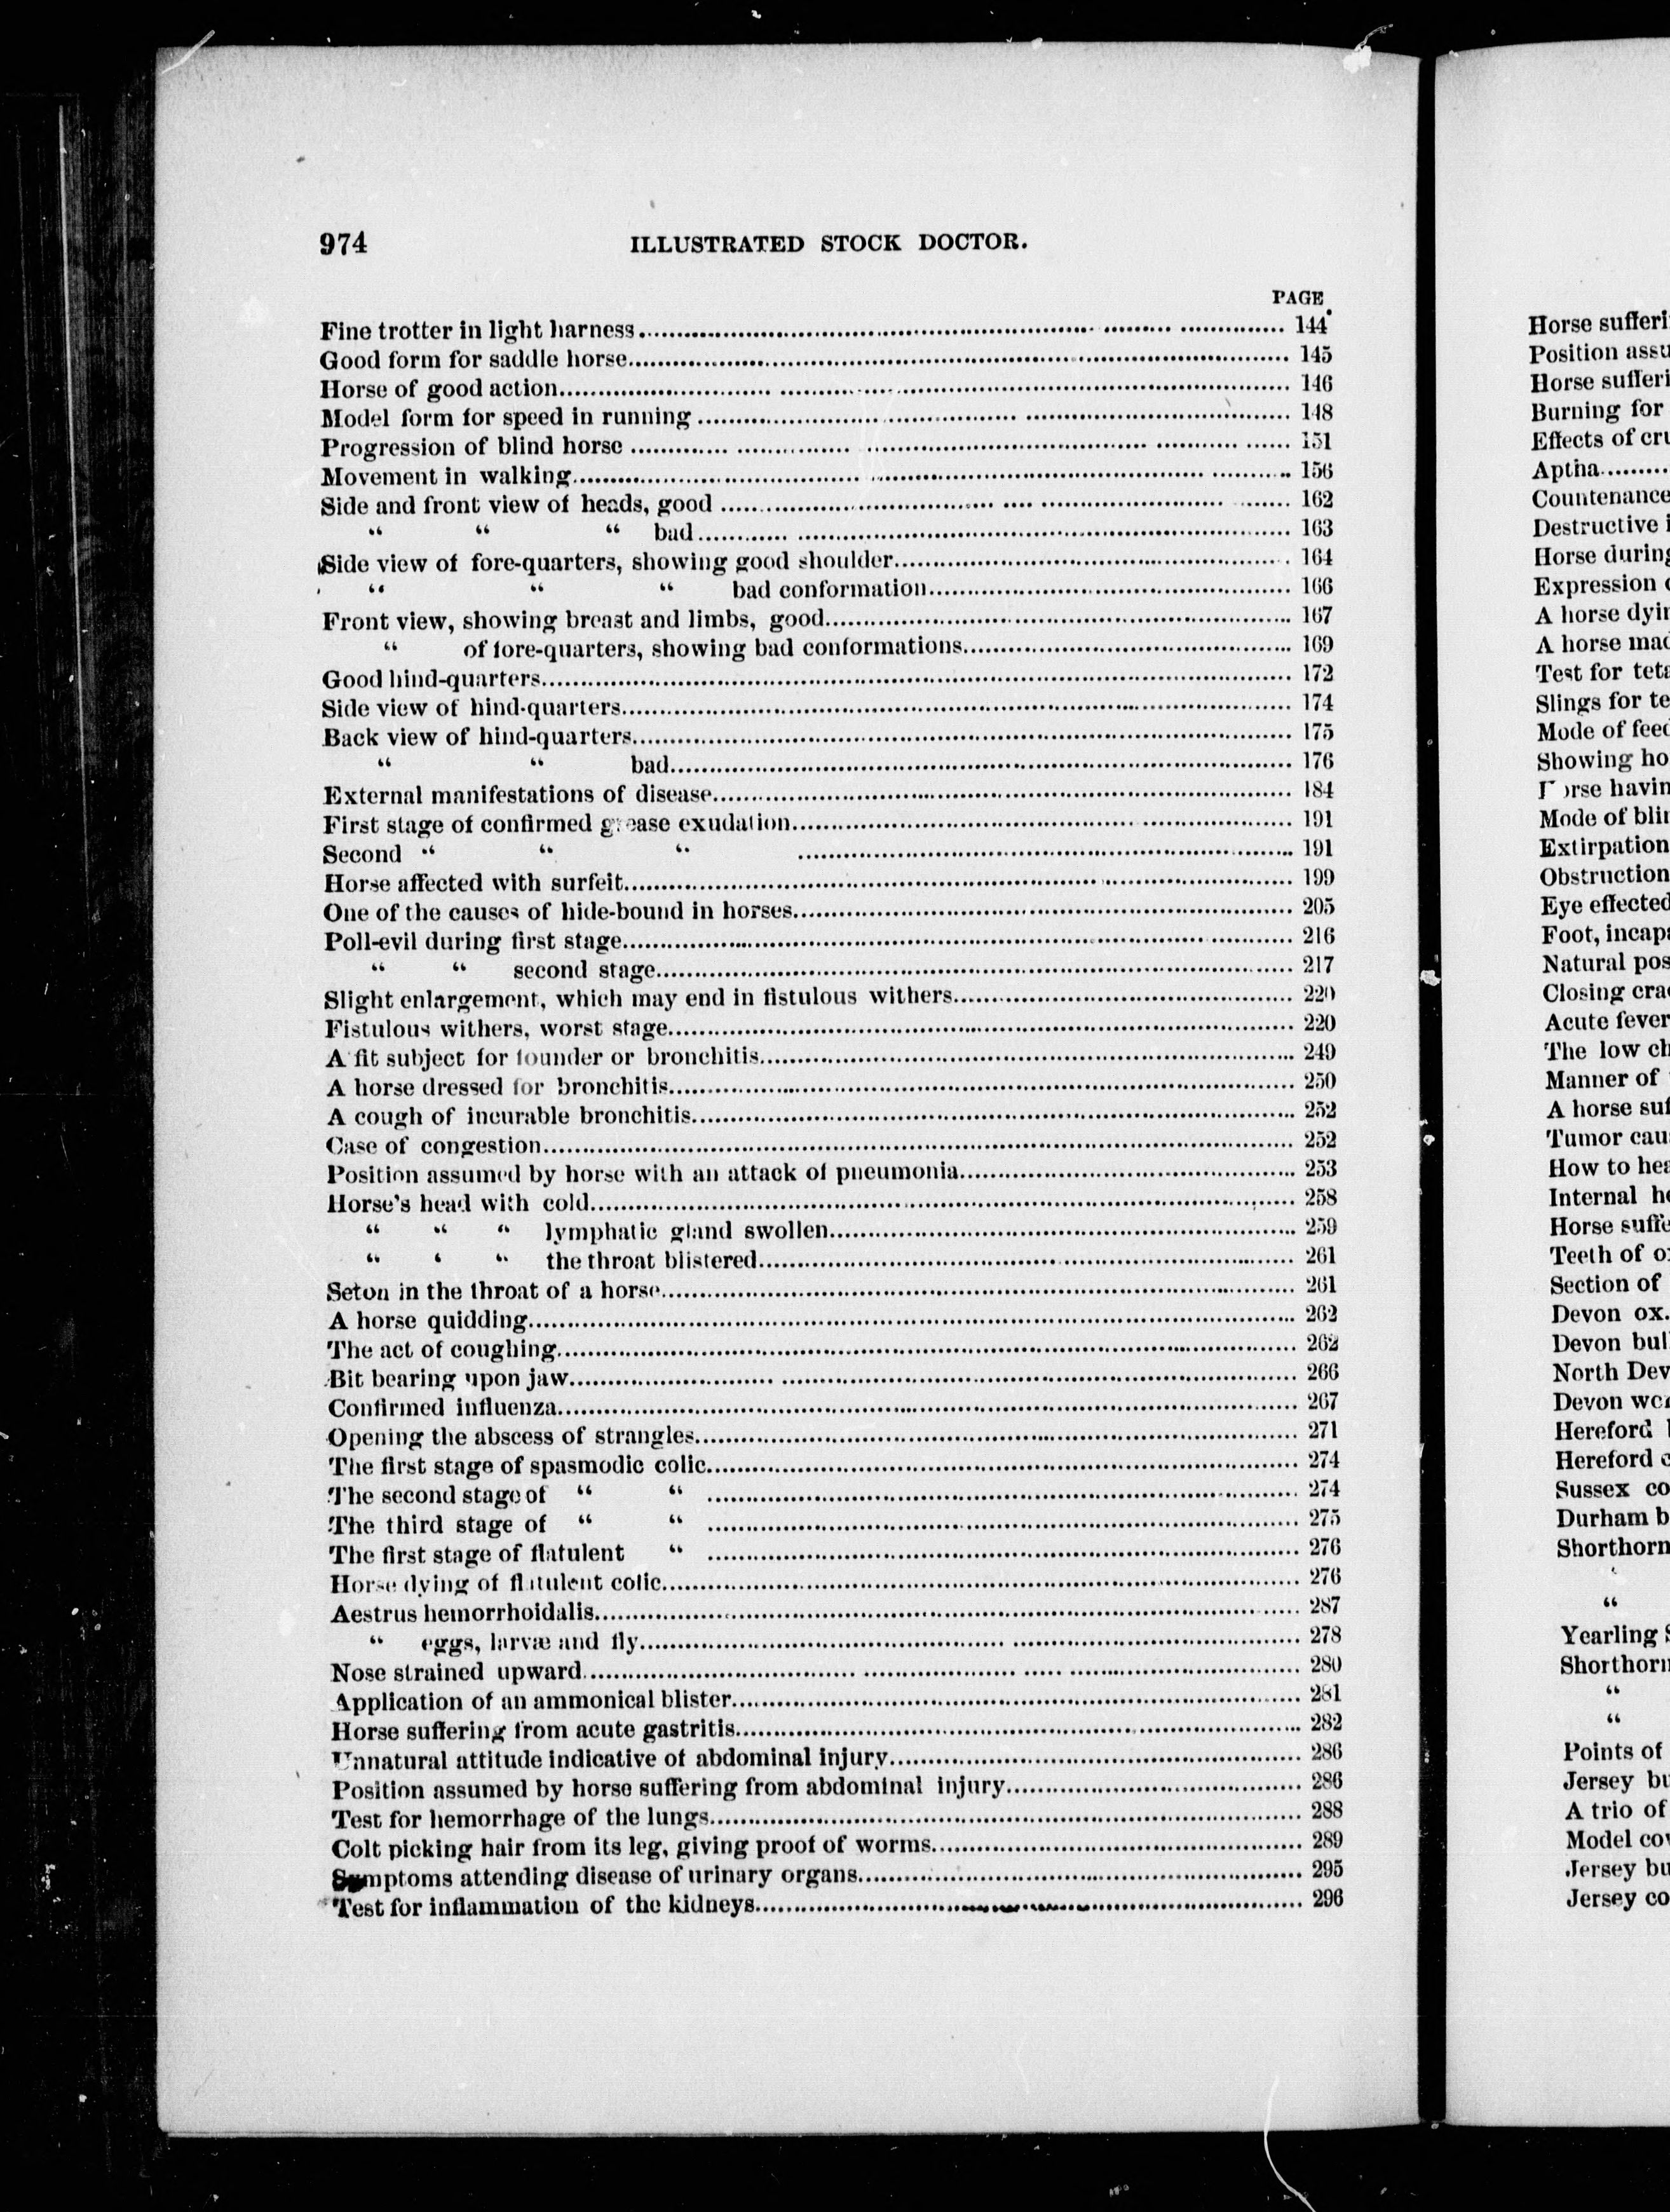 974 ILLUSTRATED STOCK DOCTOR.
PAGE
Fine trotter in light harness 144
Good form for saddle horse 145
Horse of good action 146
Model form for speed in running 148
Progression of blind horse 151
Movement in walking 156
Side and front view of heads, good 162
“ “ “ bad 163
Side view of fore-quarters, showing good shoulder 164
“ “ “ bad conformation 166
Front view, showing breast and limbs, good 167
“ of fore-quarters, showing bad conformations 169
Good hind-quarters 172
Side view of hind-quarters 174
Back view of hind-quarters 175
“ “ bad 176
External manifestations of disease 184
First stage of confirmed grease exudation 191
Second “ “ “ 191
Horse affected with surfeit 199
One of the causes of hide-bound in horses 205
Poll-evil during first stage 216
“ “ second stage 217
Slight enlargement, which may end in fistulous withers 220
Fistulous withers, worst stage 220
A fit subject for founder or bronchitis 249
A horse dressed for bronchitis 250
A cough of incurable bronchitis 252
Case of congestion 252
Position assumed by horse with an attack of pneumonia 253
Horse's head with cold 258
“ “ “ lymphatic gland swollen 259
“ ‘ “ the throat blistered 261
Seton in the throat of a horse 261
A horse quidding 262
The act of coughing 262
Bit bearing upon jaw 266
Confirmed influenza 267
Opening the abscess of strangles 271
The first stage of spasmodic colic 274
The second stage of “ “ 274
The third stage of “ “ 275
The first stage of flatulent “ 276
Horse dying of flatulent colic 276
Aestrus hemorrhoidalis 287
“ eggs, larvæ and fly 278
Nose strained upward 280
Application of an ammonical blister 281
Horse suffering from acute gastritis 282
Unnatural attitude indicative of abdominal injury 286
Position assumed by horse suffering from abdominal injury 286
Test for hemorrhage of the lungs 288
Colt picking hair from its leg, giving proof of worms 289
Symptoms attending disease of urinary organs 295
Test for inflammation of the kidneys 296
Horse
Position
Horse
Burning for
Effects of
Aptha
Countenance
Destructive
Horse during
Expression
A horse
A horse
Test for
Slings for
Mode of
Showing
having
Mode of
Extirpation
Obstruction
Eye effected
Foot,
Natural
Closing
Acute fever
The low
Manner of
A horse
Tumor
How to
Internal
Horse
Teeth of
Section of
Devon ox.
Devon
North
Devon
Hereford
Hereford
Sussex
Durham
Shorthorn
“
Yearling
Shorthorn
“
“
Points of
Jersey
A trio of
Model
Jersey
Jersey